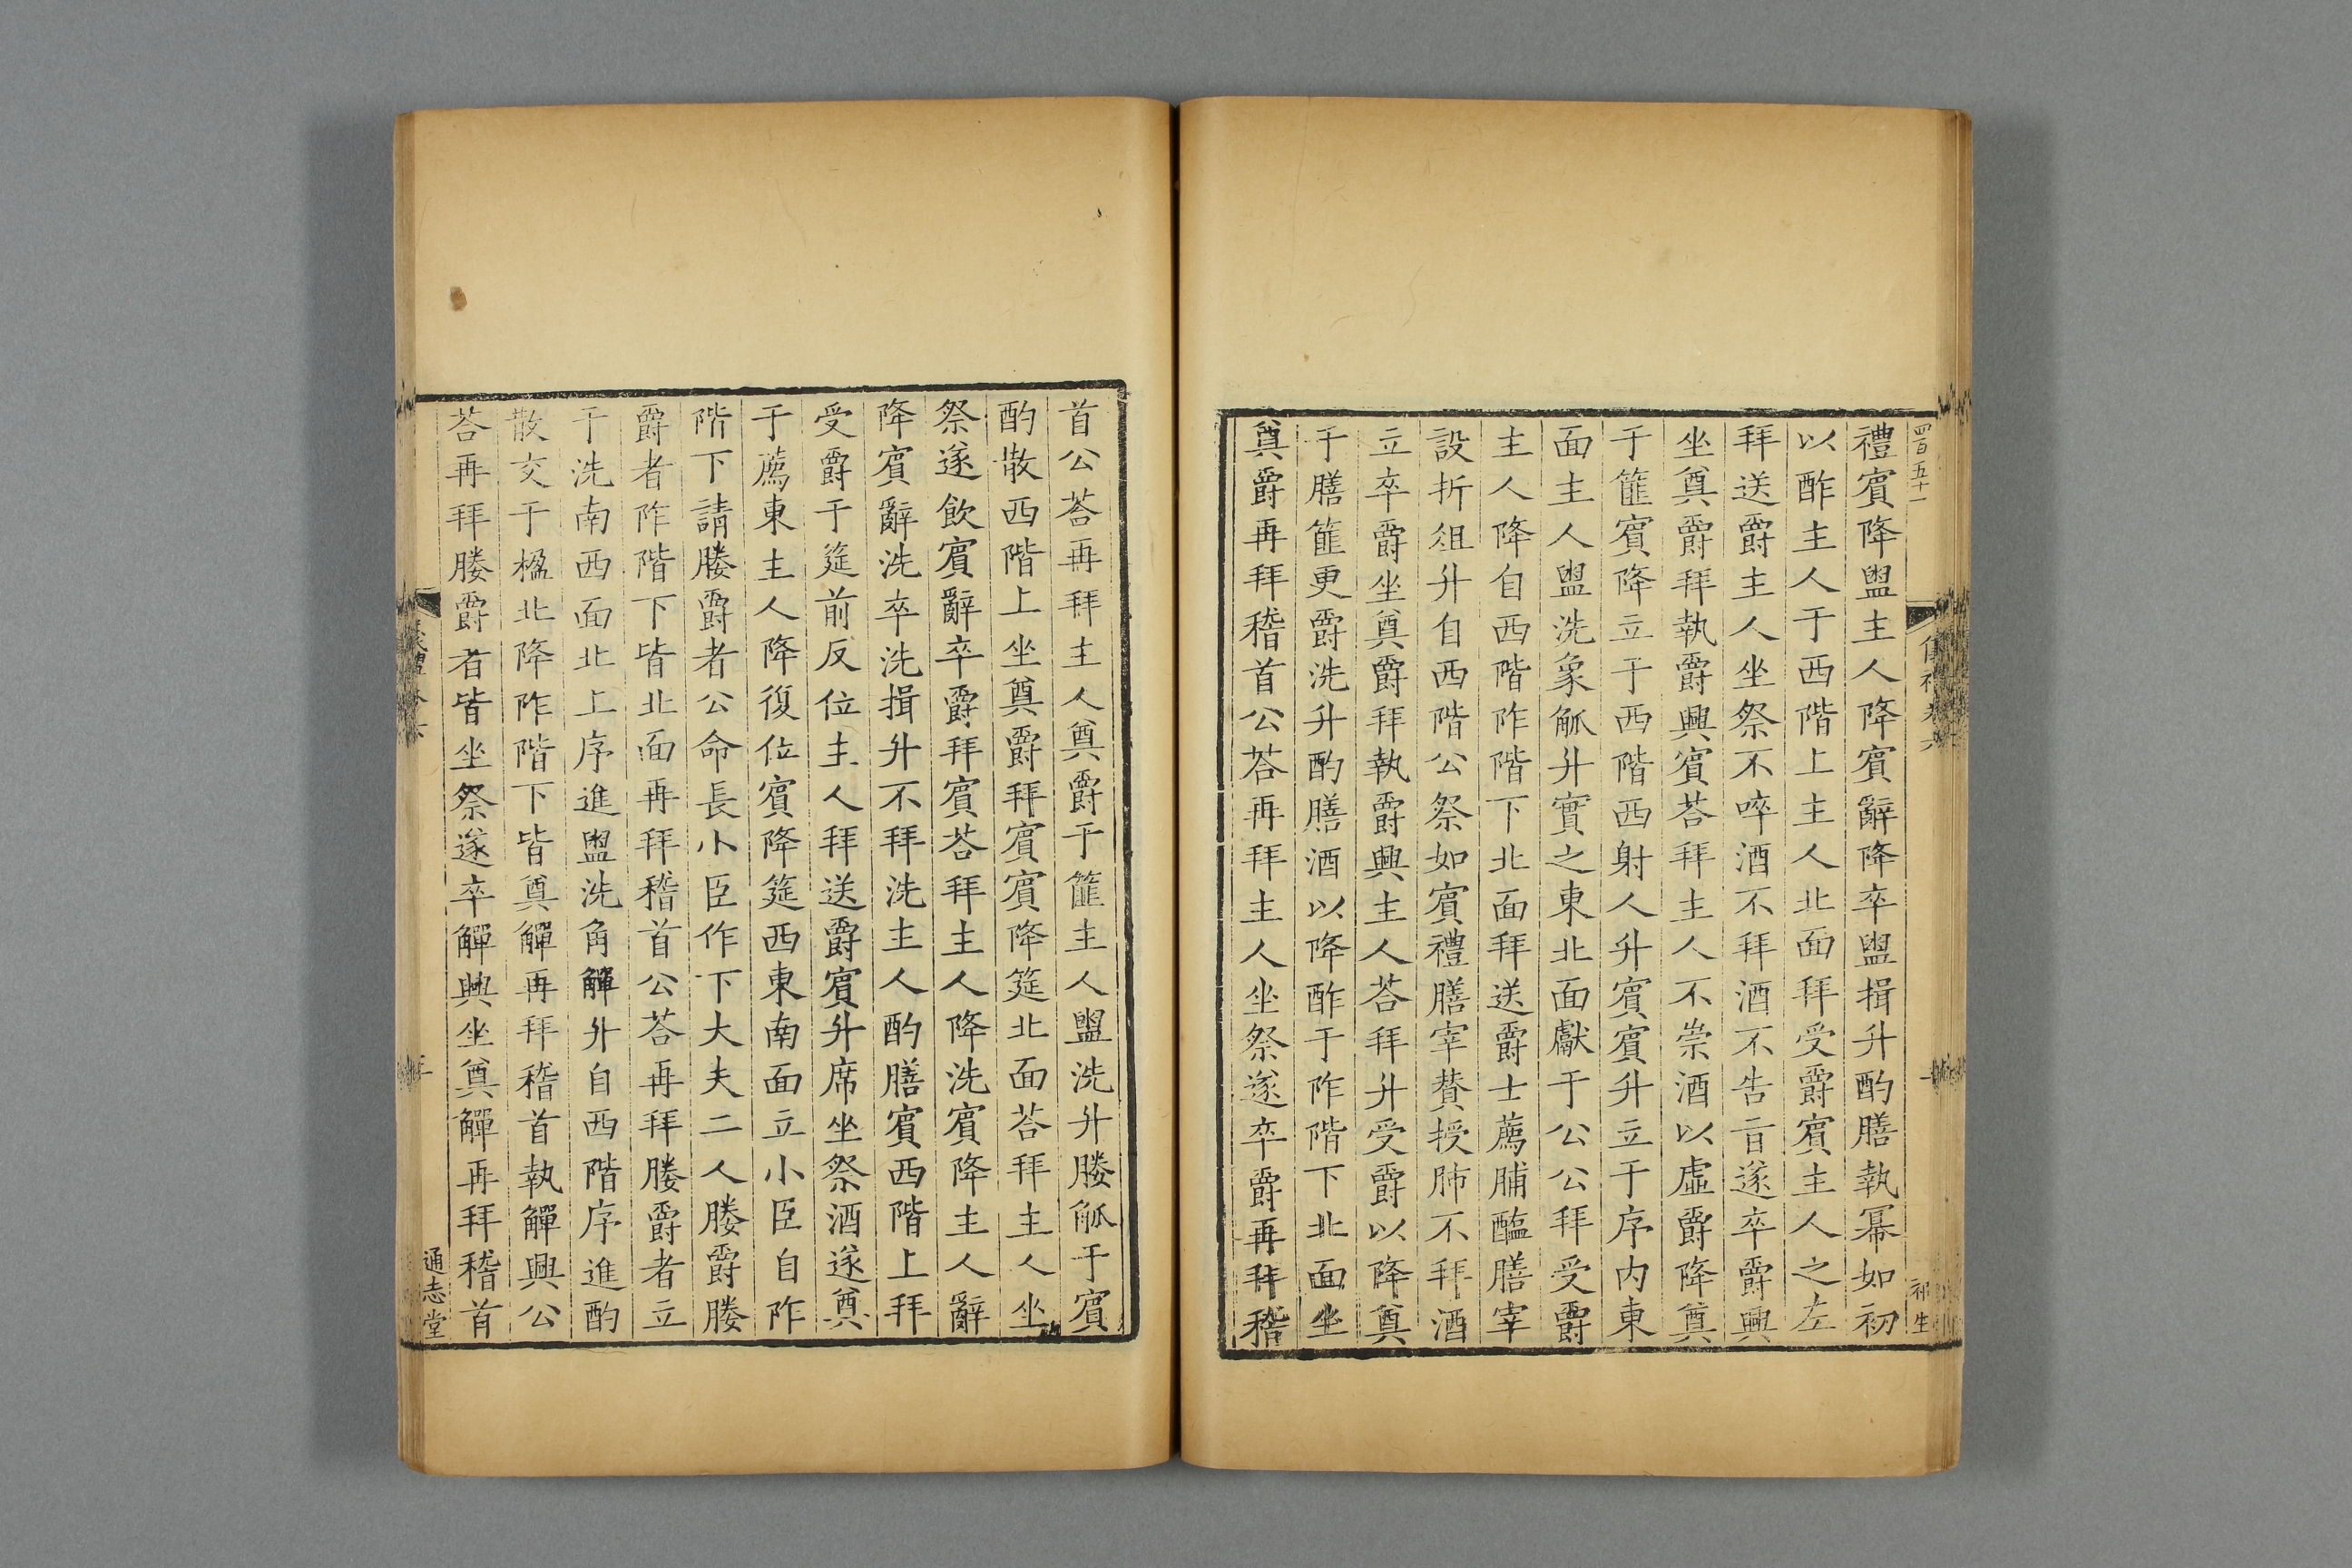 四百五十一
禮賓降盥主人降賓辭降卒盥揖升酌膳執冪如初
以酢主人于西階上主人北面拜受爵賓主人之左
拜送爵主人坐祭不啐酒不拜酒不告旨遂卒爵興
坐奠爵拜執爵興賓荅拜主人不崇酒以虛爵降奠
于篚賓降立于西階西射人升賓賓升立于序內東
面主人盥洗象觚升實之東北面獻于公公拜受爵
主人降自西階阼階下北面拜送爵士薦脯醢膳宰
設折俎升自西階公祭如賓禮膳宰贊授肺不拜酒
立卒爵坐奠爵拜執爵興主人荅拜升受爵以降奠
于膳篚更爵洗升酌膳酒以降酢于阼階下北面坐
奠爵再拜稽首公荅再拜主人坐祭遂卒爵再拜稽
祁生
首公荅再拜主人奠爵于篚主人盥洗升媵觚于賓
酌散西階上坐奠爵拜賓賓降筵北面荅拜主人坐
祭遂飲賓辭卒爵拜賓荅拜主人降洗賓降主人辭
降賓辭洗卒洗揖升不拜洗主人酌膳賓西階上拜
受爵于筵前反位主人拜送爵賓升席坐祭酒遂奠
于薦東主人降復位賓降筵西東南面立小臣自阼
階下請媵爵者公命長小臣作下大夫二人媵爵媵
爵者阼階下皆北面再拜稽首公荅再拜媵爵者立
于洗南西面北上序進盥洗角觶升自西階序進酌
散交于楹北降阼階下皆奠觶再拜稽首執觶興公
荅再拜媵爵者皆坐祭遂卒觶興坐奠觶再拜稽首
通志堂